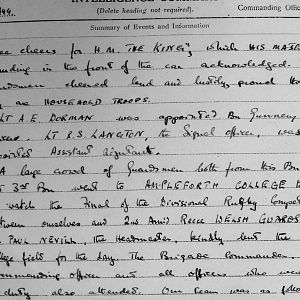 INTELLIGENCE
(Delete heading not required).
Commanding Offic
/44.
Summary of Events and Information
ee cheers for H.M. THE KING", which HIS MAJE
anding in the front of the car acknowledged.
cheered loud and lustily, proud th
y are HOUSEHOLD TROOPS.
LT A.E. DORMAN was appointed Bn Gunnery
Lt R.S. LANGTON, the Signal officer, was
Assistant Adjutant.
A large crowd of Guardsmen both from this Bn
3rd Bn went to AMPLEFORTH COLLEGE t
watch the Final of the Divisional Rugby Compet
tween ourselves and 2nd Armd Recce WELSH GUARDS
PAUL NEVILL, the Headmaster, kindly lent the
ege field for the day. The Brigade Commander,
mmanding officer and all officers who were
duty also attended. Our team was as follo